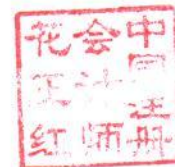 中国注册
会计师
花红